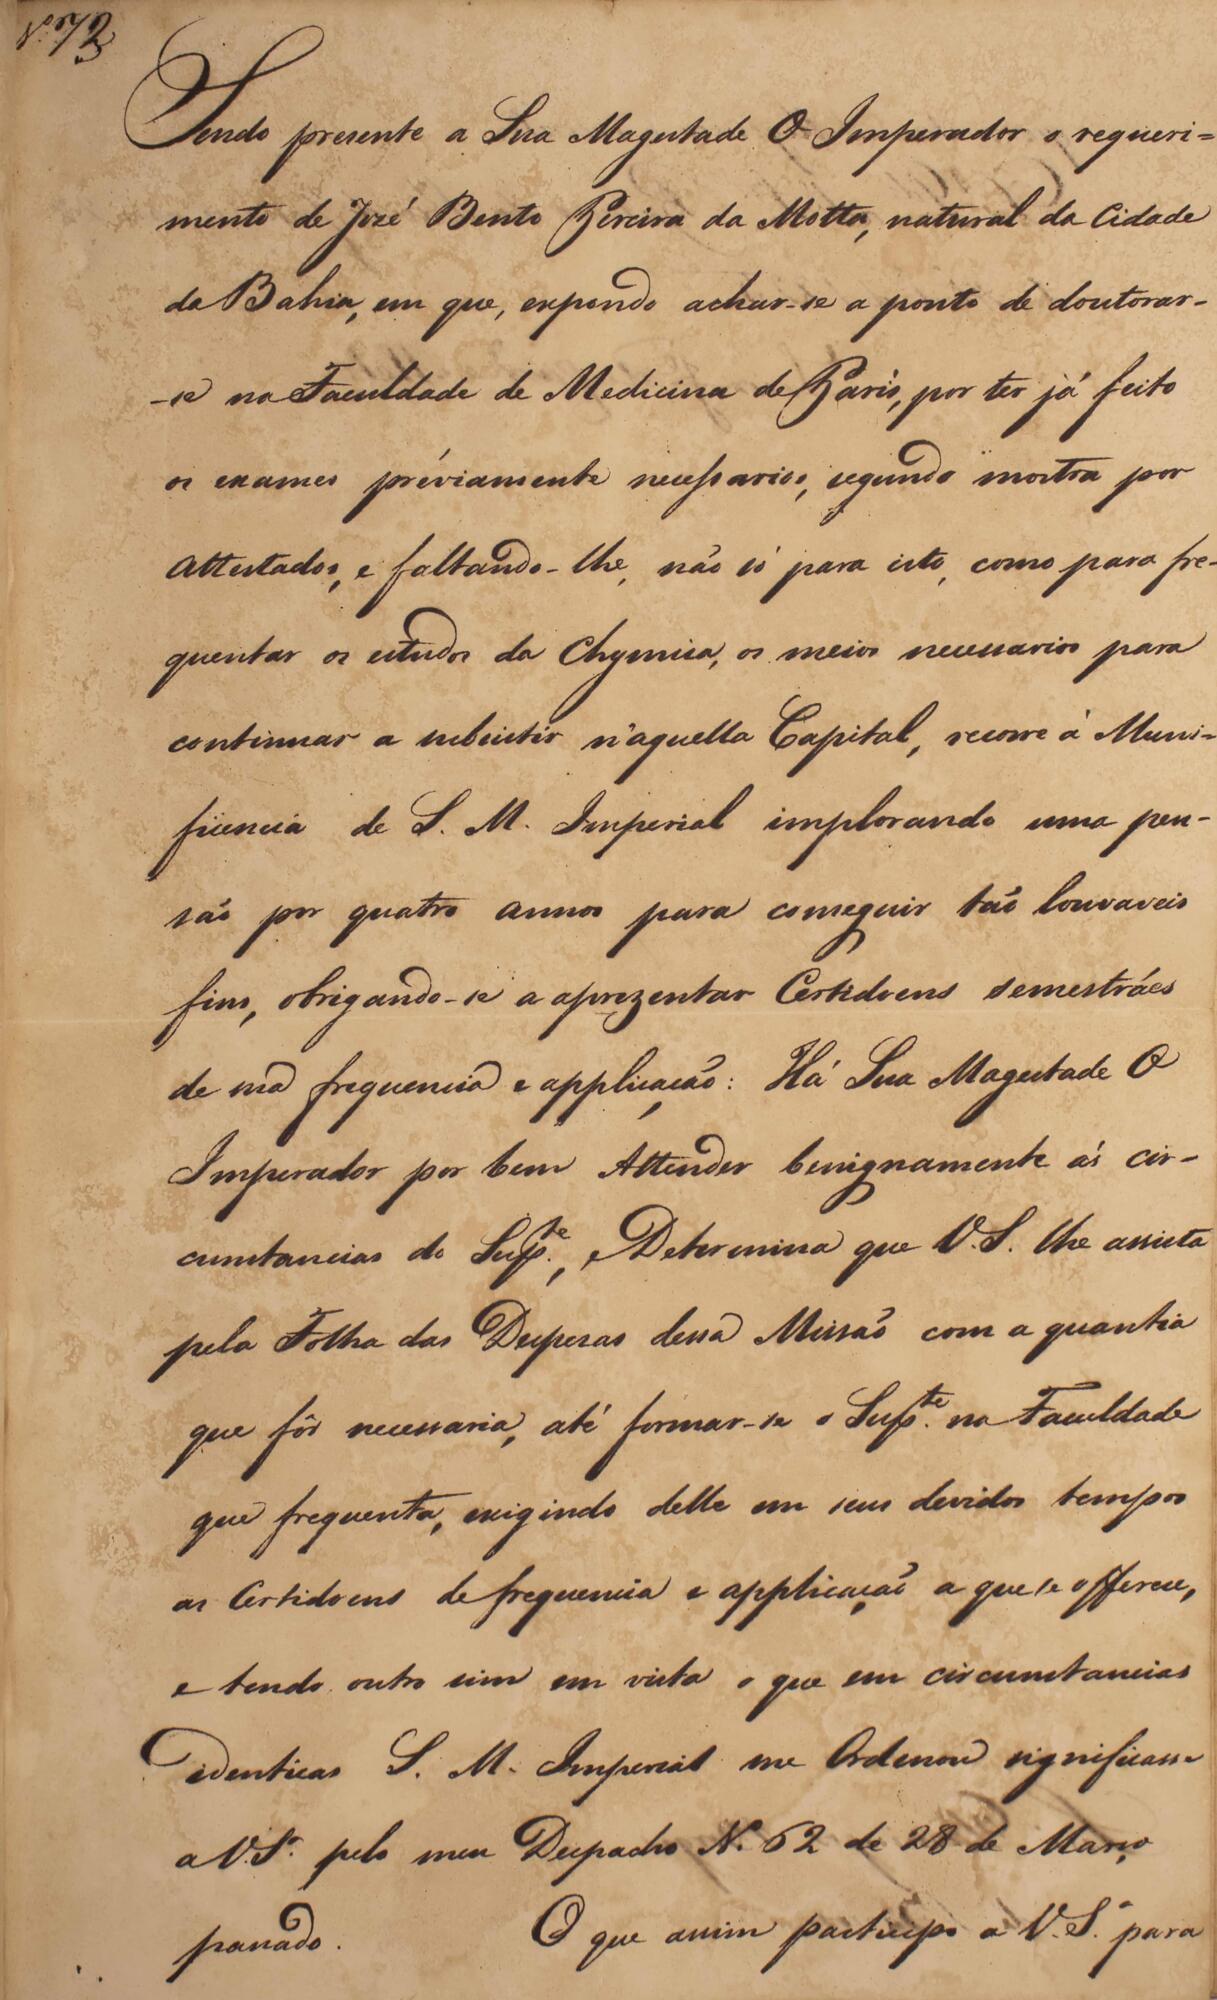 Nº 73
Sendo presente a Sua Magestade O Imperador o requeri=
mento de José Bento Pereira da Motta, natural da Cidade
da Bahia, em que, expondo achar-se a ponto de doutorar-
-se na Faculdade de Medicina de Paris, por ter já feito
os exames préviamente necessarios, segundo mostra por
Attestados, e faltando-lhe, não só para isto, como para fre-
quentar os estudos da Chymica, os meios necessarios para
continuar a subsistir n'aquella Capital, recorre á Muni=
ficencia de S. M. Imperial implorando uma pen-
são por quatro annos para conseguir tão louvaveis
fins, obrigando-se a aprezentar Certidoens semestráes
de sua frequencia e applicação: Há Sua Magestade O
Imperador por bem Attender benignamente ás cir-
cumstancias do Supte., e Determina que V.S. lhe assista
pela Folha das Despezas dessa Missão com a quantia
que fôr necessaria, até formar-se o Supte. na Faculdade
que frequenta, exigindo delle em seus devidos tempos
as Certidoens de frequencia e applicação a que se offerece,
e tendo outro sim em vista o que em circumstancias
identicas S. M. Imperial me Ordenou significasse
a V.Sª. pelo meu Despacho Nº. 62 de 28 de Março
passado. O que assim participo a V.Sª. para